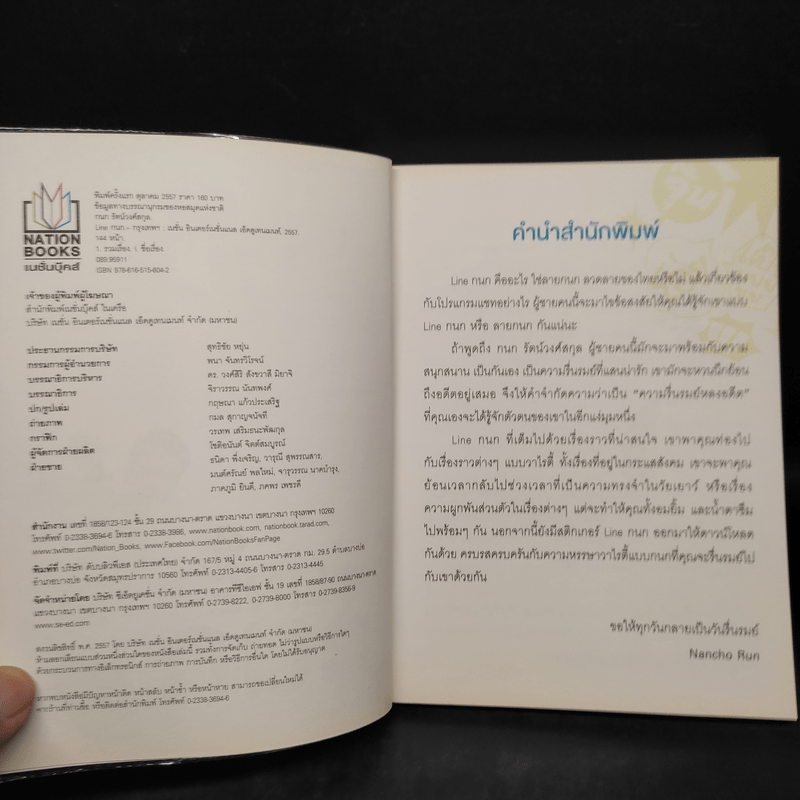 NATION
BOOKS
เนชั่นบุ๊คส์
พิมพ์ครั้งแรก ตุลาคม 2557 ราคา 160 บาท
ข้อมูลทางบรรณานุกรมของหอสมุดแห่งชาติ
กนก รัตน์วงศ์สกุล.
Line กนก – กรุงเทพฯ : เนชั่น อินเตอร์เนชั่นแนล เอ็ดดูเทนเมนท์, 2557.
144 หน้า.
1. รวมเรื่อง. I. ชื่อเรื่อง.
089.95911
ISBN 978-616-515-604-2
เจ้าของผู้พิมพ์ผู้โฆษณา
สำนักพิมพ์เนชั่นบุ๊คส์ ในเครือ
บริษัท เนชั่น อินเตอร์เนชั่นแนล เอ็ดดูเทนเมนท์ จำกัด (มหาชน)
ประธานกรรมการบริษัท สุทธิชัย หยุ่น
กรรมการผู้อำนวยการ พนา จันทรวิโรจน์
บรรณาธิการบริหาร ดร. วงศ์สิริ สังขวาสี มิยาจิ
บรรณาธิการ จิราวรรณ นันทพงศ์
ปก/รูปเล่ม กฤษณา แก้วประเสริฐ
ถ่ายภาพ กมล สุกาญจนัจที
กราฟิก วรเทพ เสริมธนะพัฒกุล
ผู้จัดการฝ่ายผลิต โชติอนันต์ จิตต์สมบูรณ์
ฝ่ายขาย ธนิดา พึ่งเจริญ, วารุณี สุพรรณสาร,
มนต์ศรัณย์ พลใหม่, จารุวรรณ นาคบำรุง,
ภาคภูมิ ยินดี, ภคพร เพชรดี
สำนักงาน เลขที่ 1858/123-124 ชั้น 29 ถนนบางนา-ตราด แขวงบางนา เขตบางนา กรุงเทพฯ 10260
โทรศัพท์ 0-2338-3694-6 โทรสาร 0-2338-3986, www.nationbook.com, nationbook.tarad.com,
www.twitter.com/Nation_Books, www.Facebook.com/NationBooksFanPage
พิมพ์ที่ บริษัท ดับบลิวพีเอส (ประเทศไทย) จำกัด 167/5 หมู่ 4 ถนนบางนา-ตราด กม. 29.5 ตำบลบางบ่อ
อำเภอบางบ่อ จังหวัดสมุทรปราการ 10560 โทรศัพท์ 0-2313-4405-6 โทรสาร 0-2313-4445
จัดจำหน่ายโดย บริษัท ซีเอ็ดยูเคชั่น จำกัด (มหาชน) อาคารทีซีไอเอฟ ชั้น 19 เลขที่ 1858/87-90 ถนนบางนาตราด
แขวงบางนา เขตบางนา กรุงเทพฯ 10260 โทรศัพท์ 0-2739-8222, 0-2739-8000 โทรสาร 0-2739-8356-9
www.se-ed.com
สงวนลิขสิทธิ์ พ.ศ. 2557 โดย บริษัท เนชั่น อินเตอร์เนชั่นแนล เอ็ดดูเทนเมนท์ จำกัด (มหาชน)
ห้ามลอกเลียนแบบส่วนหนึ่งส่วนใดของหนังสือเล่มนี้ รวมทั้งการจัดเก็บ ถ่ายทอด ไม่ว่ารูปแบบหรือวิธีการใดๆ
ด้วยกระบวนการทางอิเล็กทรอนิกส์ การถ่ายภาพ การบันทึก หรือวิธีการอื่นใด โดยไม่ได้รับอนุญาต
หากพบหนังสือมีปัญหาหน้าติด หน้าสลับ หน้าซ้ำ หรือหน้าหาย สามารถขอเปลี่ยนใหม่ได้
จากร้านที่ท่านซื้อ หรือติดต่อสำนักพิมพ์ โทรศัพท์ 0-2338-3694-6
คำนำสำนักพิมพ์
Line กนก คืออะไร ใช่ลายกนก ลวดลายของไทยหรือไม่ แล้วเกี่ยวข้อง
กับโปรแกรมแชทอย่างไร ผู้ชายคนนี้จะมาไขข้อสงสัยให้คุณได้รู้จักเขาแบบ
Line กนก หรือ ลายกนก กันแน่นะ
ถ้าพูดถึง กนก รัตน์วงศ์สกุล ผู้ชายคนนี้มักจะมาพร้อมกับความ
สนุกสนาน เป็นกันเอง เป็นความรื่นรมย์ที่แสนน่ารัก เขามักจะหวนนึกย้อน
ถึงอดีตอยู่เสมอ จึงให้คำจำกัดความว่าเป็น “ความรื่นรมย์หลงอดีต”
ที่คุณเองจะได้รู้จักตัวตนของเขาในอีกแง่มุมหนึ่ง
Line กนก ที่เต็มไปด้วยเรื่องราวที่น่าสนใจ เขาพาคุณท่องไป
กับเรื่องราวต่างๆ แบบวาไรตี้ ทั้งเรื่องที่อยู่ในกระแสสังคม เขาจะพาคุณ
ย้อนเวลากลับไปช่วงเวลาที่เป็นความทรงจำในวัยเยาว์ หรือเรื่อง
ความผูกพันส่วนตัวในเรื่องต่างๆ แต่จะทำให้คุณทั้งอมยิ้ม และน้ำตาซึม
ไปพร้อมๆ กัน นอกจากนี้ยังมีสติกเกอร์ Line กนก ออกมาให้ดาวน์โหลด
กันด้วย ครบรสครบครันกับความหรรษาวาไรตี้แบบกนกที่คุณจะรื่นรมย์ไป
กับเขาด้วยกัน
ขอให้ทุกวันกลายเป็นวันรื่นรมย์
Nancho Run